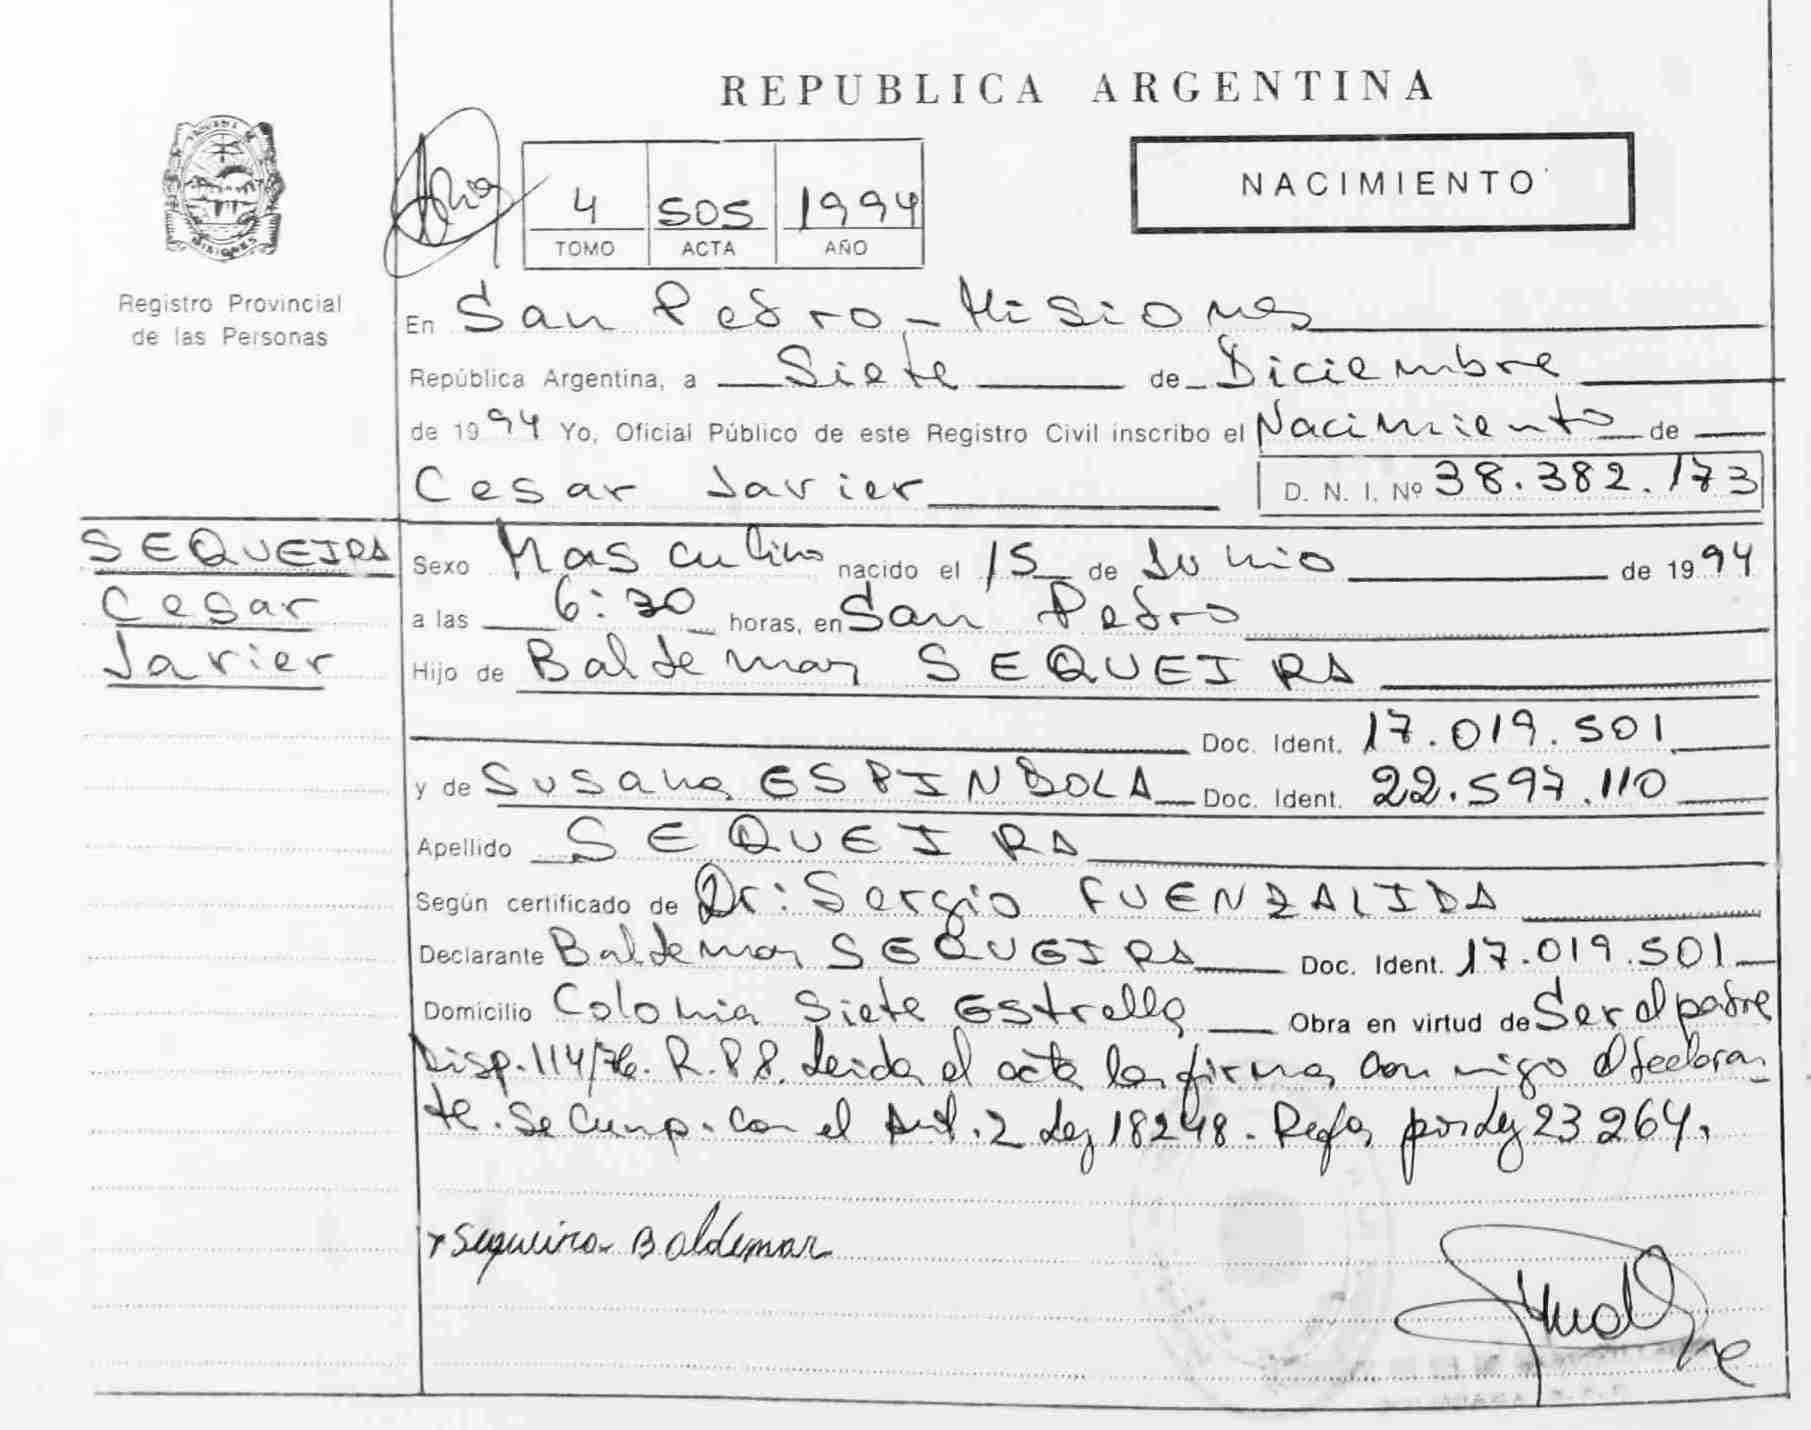 REPUBLICA ARGENTINA
NACIMIENTO
4 505 1994
TOMO ACTA AÑO
MISIONES
Registro Provincial
de las Personas
En San Pedro - Misiones
República Argentina, a Siete de Diciembre
de 1994 Yo, Oficial Público de este Registro Civil inscribo el Nacimiento de
Cesar Javier D. N. I. Nº 38.382.173
SEQUEIRA
Cesar
Javier
Sexo Masculino nacido el 15 de Junio de 1994
a las 6:30 horas, en San Pedro
Hijo de Baldemar SEQUEIRA
Doc. Ident. 17.019.501
y de Susana ESPINDOLA Doc. Ident. 22.597.110
Apellido SEQUEIRA
Según certificado de Dr: Sergio FUENZALIDA
Declarante Baldemar SEQUEIRA Doc. Ident. 17.019.501
Domicilio Colonia Siete Estrella Obra en virtud de Ser el padre
Disp. 114/76. R.P.P. Leida el acta la firma con migo el declaran
te. Se Cump. con el Art. 2 Ley 18248. Refa por Ley 23264.
Sequeira Baldemar